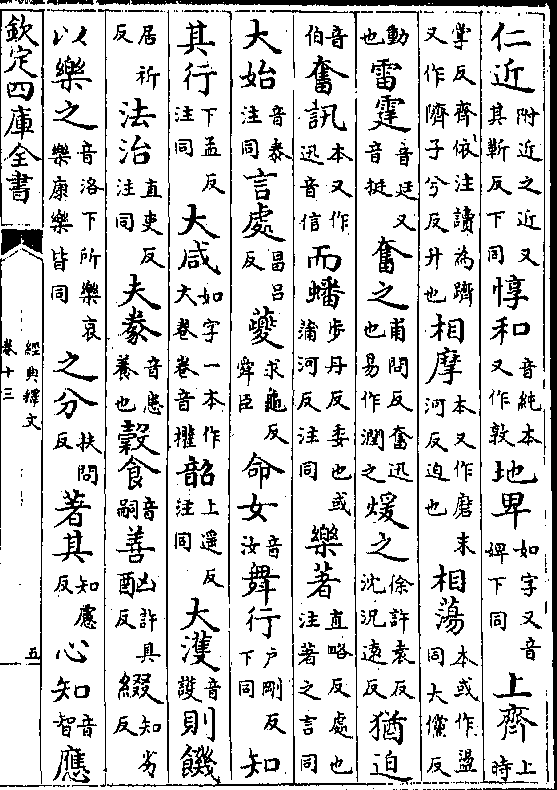 仁近附近之近又其靳反下同惇和音純本又作敦地卑如字又音婢下同上齊上時
掌反齊依注讀為躋又作隮子兮反升也相摩本又作磨末河反迫也相蕩本或作盪同大儻反
動也雷霆音廷又音挺奮之甫問反奮迅也易作潤之煖之徐許袁反沈況遠反猶迫
音伯奮訊本又作迅音信而蟠步丹反委也或蒲河反注同樂著直略反處也注著之言同
大始音泰注同言處昌吕反夔求龜反舜臣命女音汝舞行户剛反下同知
其行下孟反注同大咸如字一本作大卷卷音權韶上遥反注同大濩音護則饑
居祈反法治直吏反注同夫豢音患養也穀食音嗣善酗許具反綴知劣反
以樂之音洛下所樂哀樂康樂皆同之分扶問反著其知慮反心知音智應
欽定四庫全書
經典釋文
卷十三
五